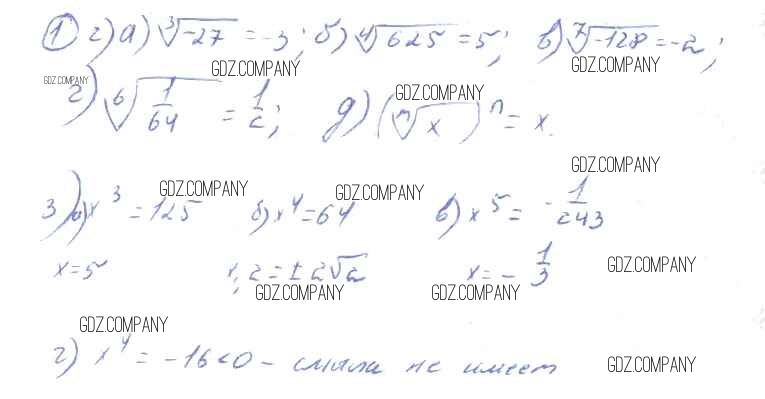 ① 2) а) ∛-27 = -3; б) ∜625 = 5; в) ⁷√-128 = -2;
GDZ.COMPANY GDZ.COMPANY
GDZ.COMPANY GDZ.COMPANY
г) ⁶√1/64 = 1/2; д) (ⁿ√x)ⁿ = x.
GDZ.COMPANY
GDZ.COMPANY GDZ.COMPANY
3) а) x³ = 125 б) x⁴ = 64 в) x⁵ = -1/243
x = 5 x₁,₂ = ±2√2 x = -1/3
GDZ.COMPANY
GDZ.COMPANY GDZ.COMPANY
GDZ.COMPANY
г) x⁴ = -16 < 0 - смысла не имеет
GDZ.COMPANY